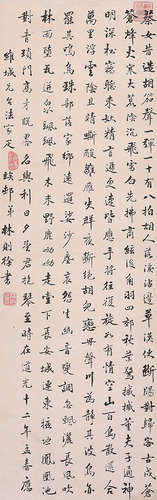 蔡女昔造胡笳聲一彈一十有八拍胡人落淚沾邊草漢使斷腸對歸客古戍
蒼蒼烽火寒大荒沉沉飛雪白先拂商絃後角羽四郊秋葉驚摵摵董夫子通神
明深松竊聽來妖精言遲更速皆應手將往復旋如有情空山百鳥散還合
萬里浮雲陰且晴嘶酸雛雁失群夜斷絕胡兒戀母聲川為靜其波鳥亦
罷其鳴烏珠部落家鄉遠邏娑沙塵哀怨生幽音變調忽飄灑長風吹
林雨墮瓦迸泉颯颯飛木末野鹿呦呦走堂下長安城連東掖垣鳳凰池
對青瑣門高才脫略名與利日夕望君抱琴至時在道光十二年
維城兄台法家正 邨弟林則徐書